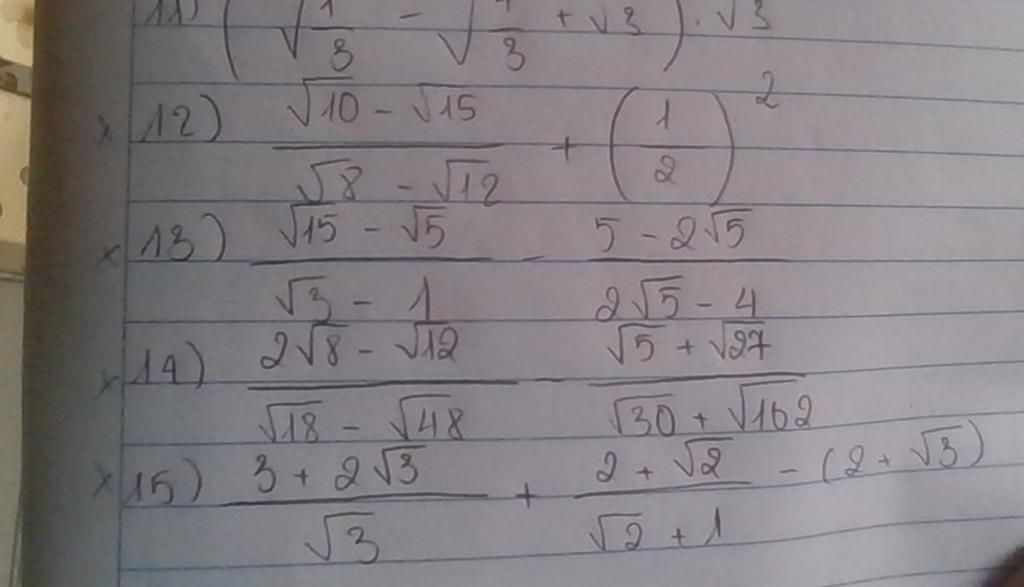 11) (√1/3 - √4/3 + √3) . √3
x 12) (√10 - √15)/(√8 - √12) + (1/2)²
x 13) (√15 - √5)/(√3 - 1) - (5 - 2√5)/(2√5 - 4)
x 14) (2√8 - √12)/(√18 - √48) - (√5 + √27)/(√30 + √162)
x 15) (3 + 2√3)/√3 + (2 + √2)/(√2 + 1) - (2 + √3)